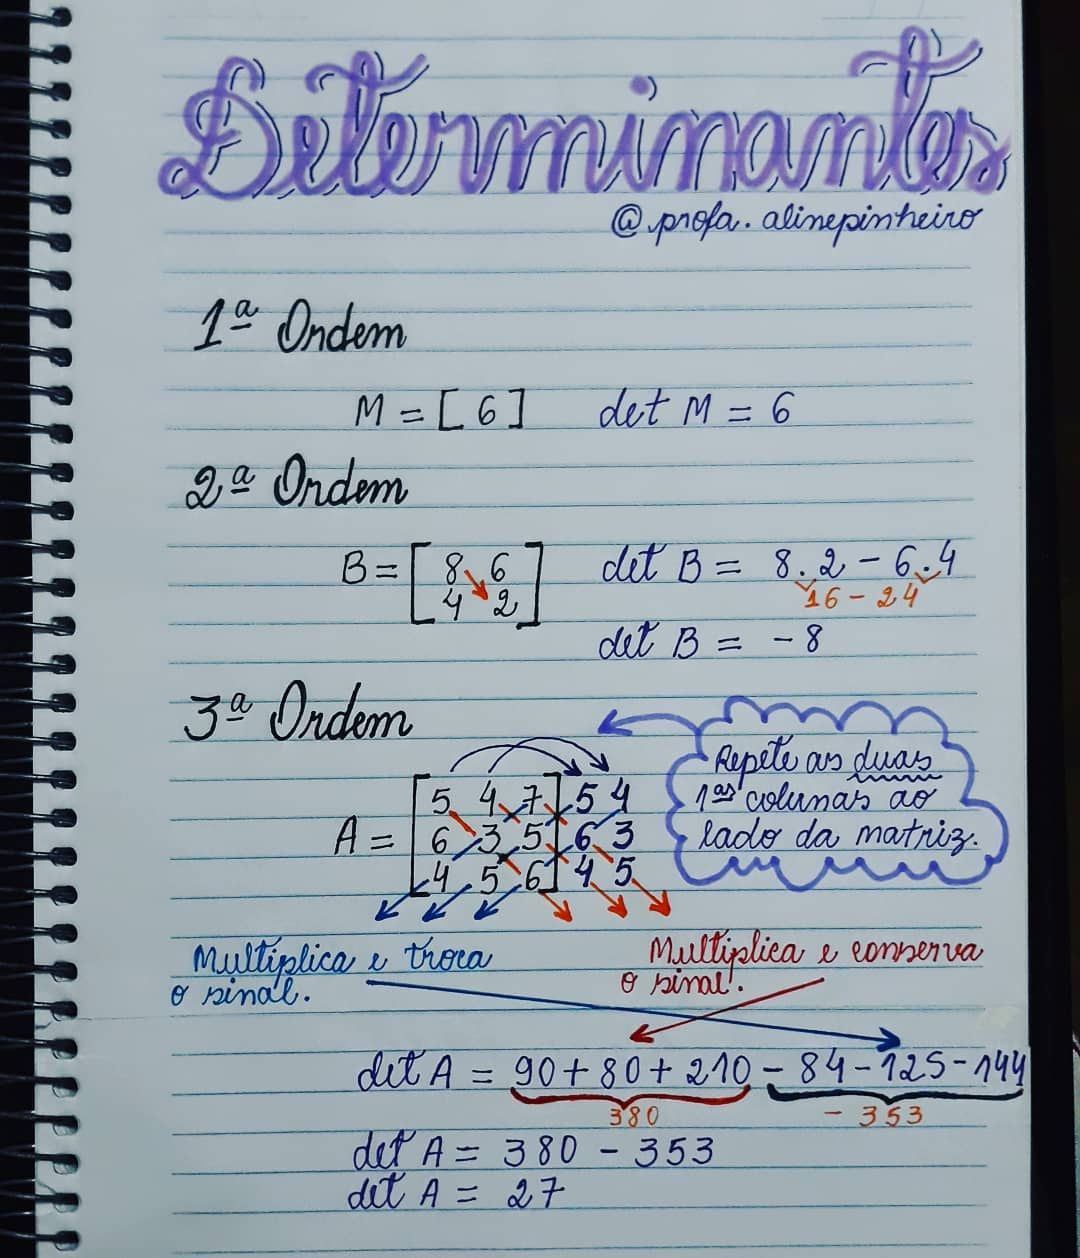 Determinantes
@profa.alinepinheiro
1ª Ordem
M = [ 6 ] det M = 6
2ª Ordem
B = [ 8 6 det B = 8.2 - 6.4
4 2 ] 16 - 24
det B = - 8
3ª Ordem
Repete as duas
1as colunas ao
lado da matriz.
A = [ 5 4 7 ] 5 4
6 3 5 6 3
4 5 6 4 5
Multiplica e troca
o sinal.
Multiplica e conserva
o sinal.
det A = 90+80+210-84-125-144
380 - 353
det A = 380 - 353
det A = 27